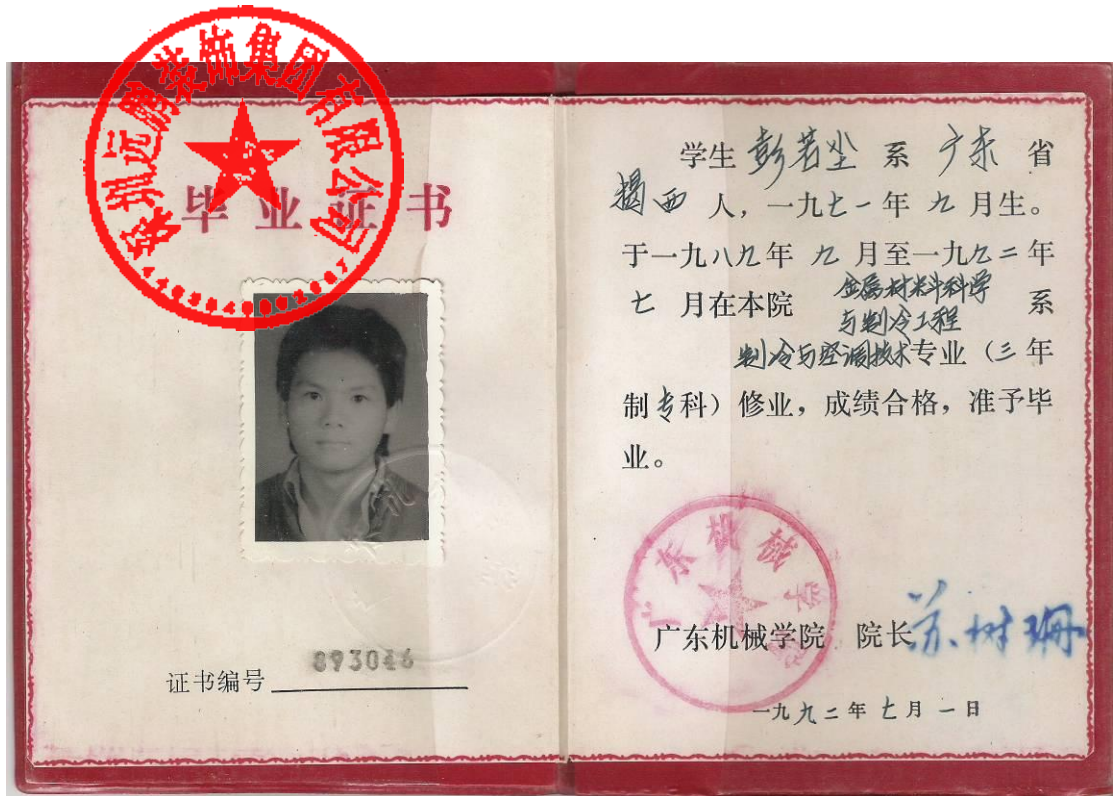 深圳远鹏装饰集团有限公司
毕业证书
证书编号 893046
学生 彭若坐 系 广东 省
揭西 人，一九七一年 九 月生。
于一九八九年 九 月至一九九二年
七 月在本院 金属材料科学与制冷工程 系
制冷与空调技术专业（三年
制专科）修业，成绩合格，准予毕
业。
广东机械学院
广东机械学院 院长 苏树珊
一九九二年七月一日